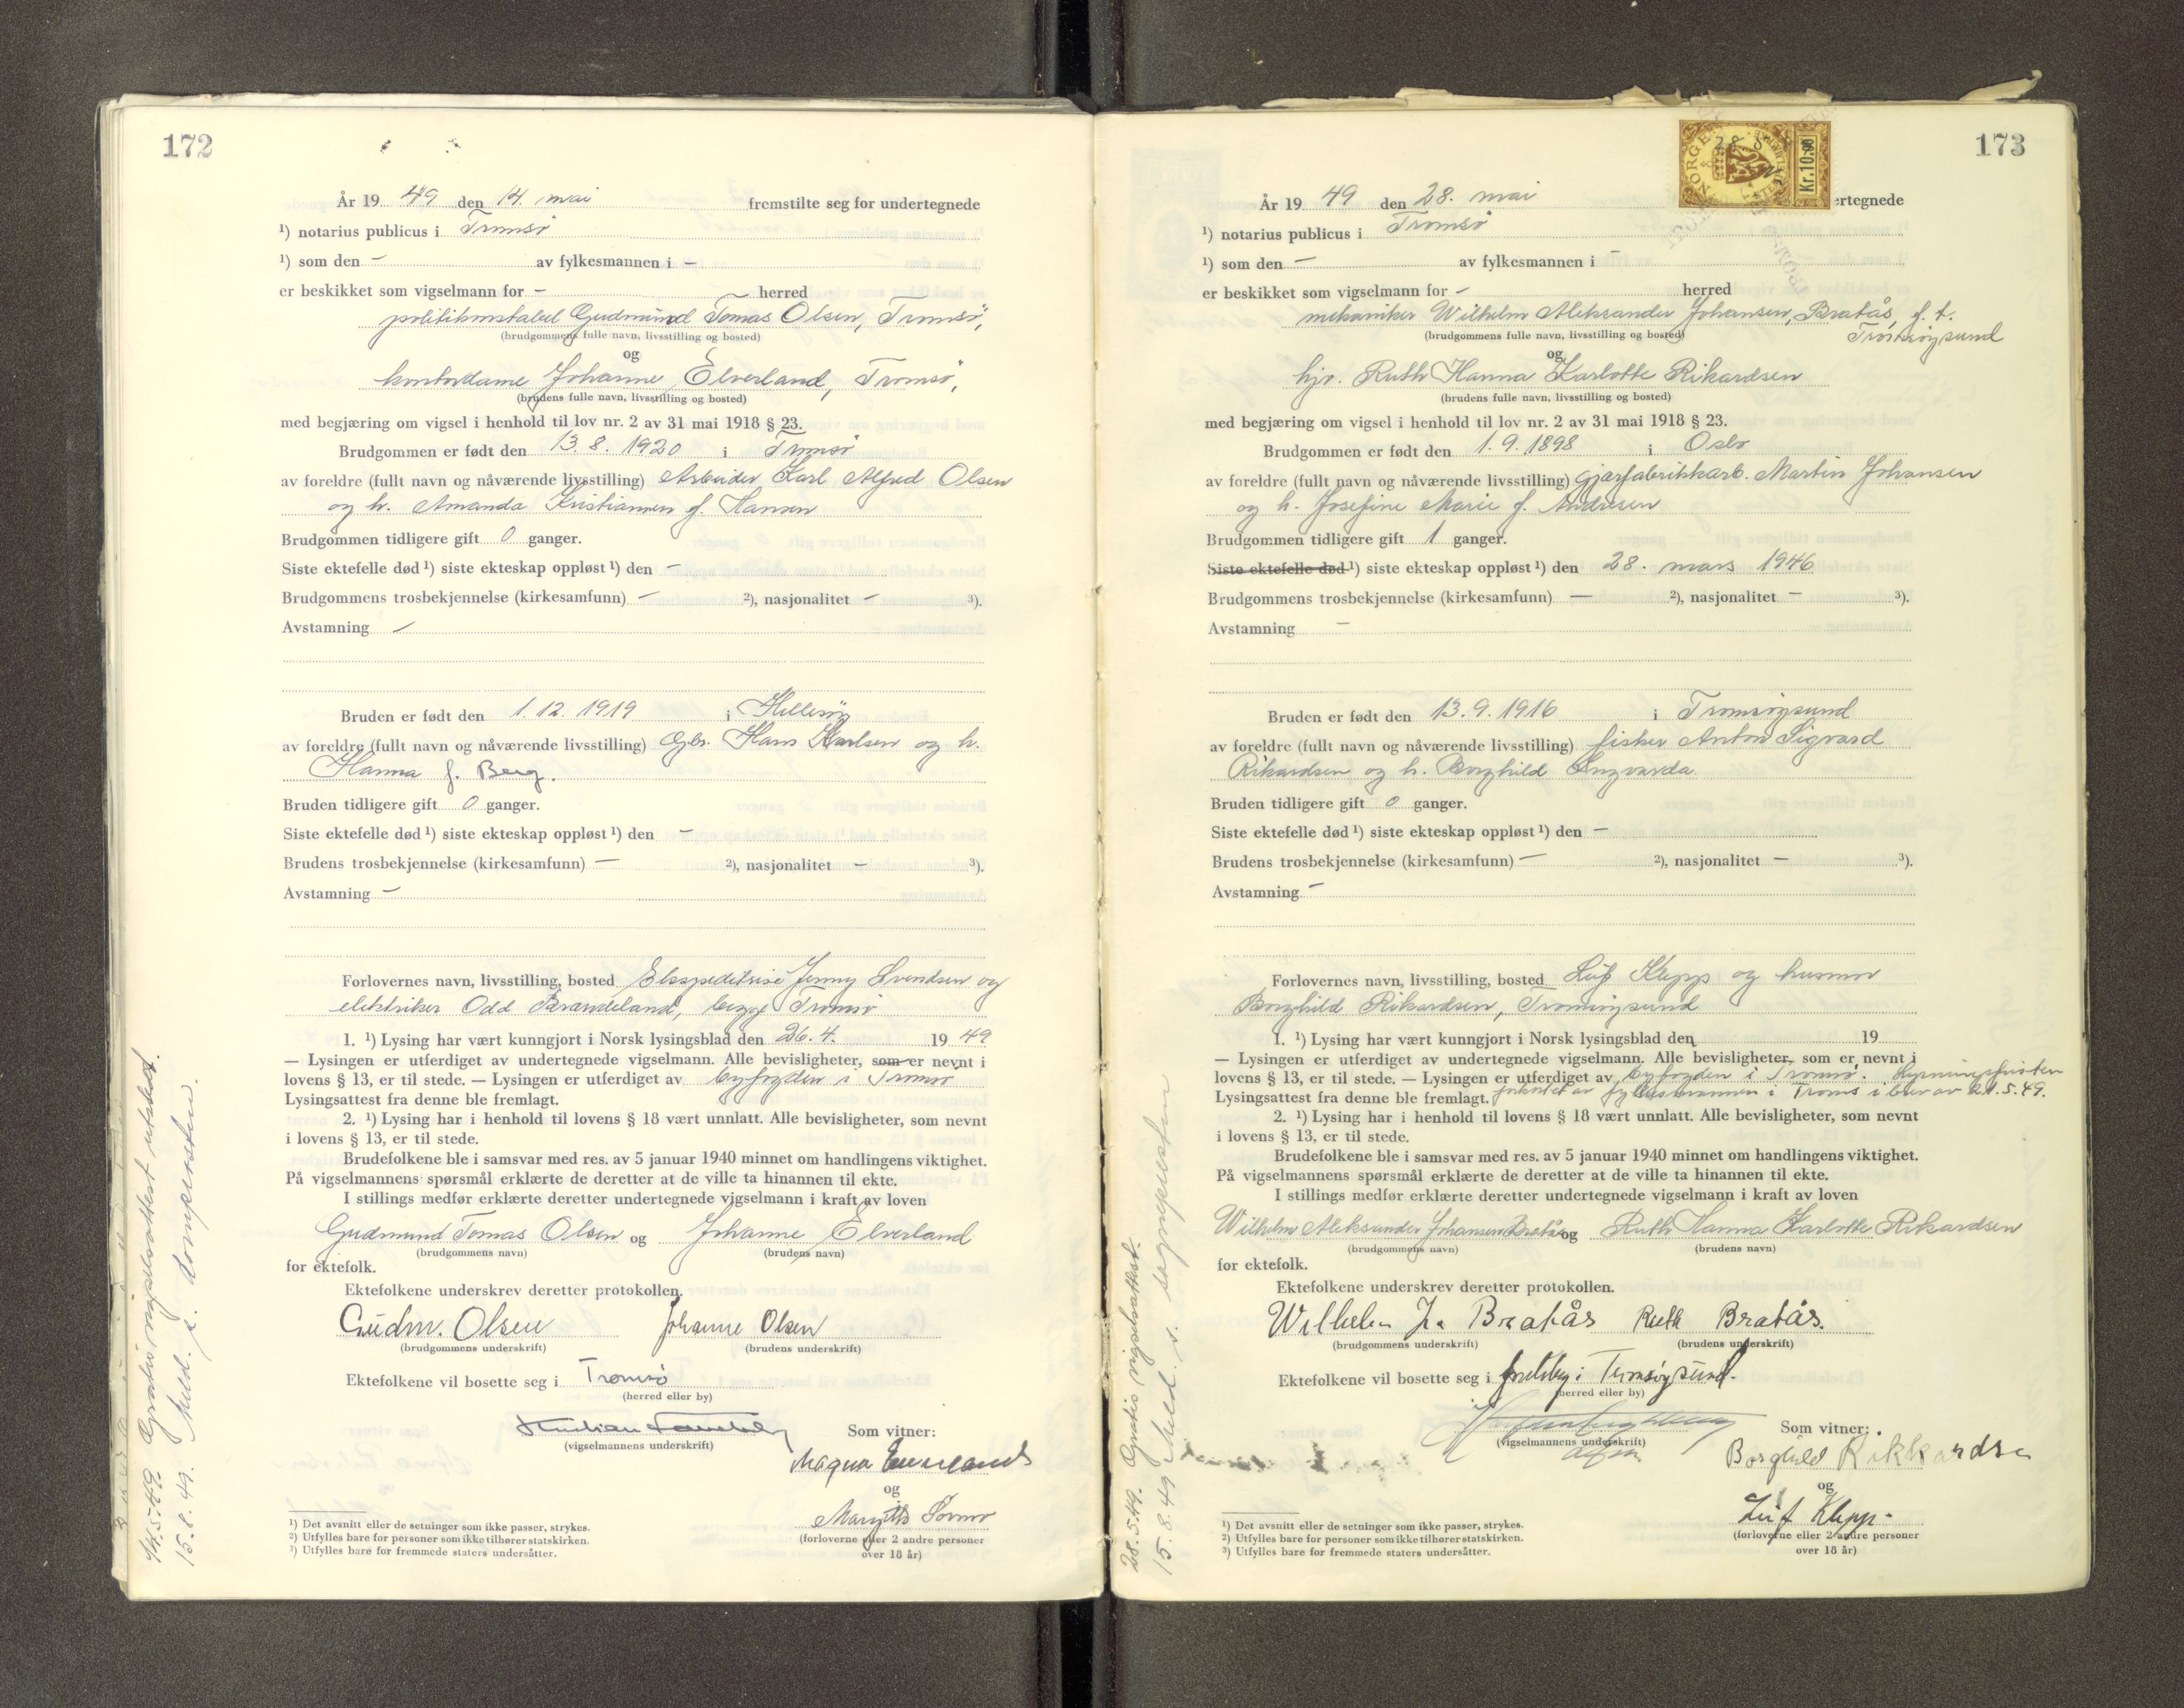 172
År 19 49 den 14. mai fremstilte seg for undertegnede
¹) notarius publicus i Tromsø
¹) som den – av fylkesmannen i –
er beskikket som vigselmann for – herred
politikonstabel Gudmund Tomas Olsen, Tromsø,
(brudgommens fulle navn, livsstilling og bosted)
og
kontordame Johanne Elverland, Tromsø,
(brudens fulle navn, livsstilling og bosted)
med begjæring om vigsel i henhold til lov nr. 2 av 31 mai 1918 § 23.
Brudgommen er født den 13. 8. 1920 i Tromsø
av foreldre (fullt navn og nåværende livsstilling) Arbeider Karl Alfred Olsen
og h. Amanda Kristiannen f. Hansen
Brudgommen tidligere gift 0 ganger.
Siste ektefelle død ¹) siste ekteskap oppløst ¹) den –
Brudgommens trosbekjennelse (kirkesamfunn) – ²), nasjonalitet – ³).
Avstamning –
Bruden er født den 1. 12. 1919 i Hillesøy
av foreldre (fullt navn og nåværende livsstilling) Gbr. Hans Karlsen og h.
Hanna f. Berg.
Bruden tidligere gift 0 ganger.
Siste ektefelle død ¹) siste ekteskap oppløst ¹) den –
Brudens trosbekjennelse (kirkesamfunn) – ²), nasjonalitet – ³).
Avstamning –
Forlovernes navn, livsstilling, bosted Ekspeditrise Jenny Svendsen og
elektriker Odd Brandeland, begge Tromsø
1. ¹) Lysing har vært kunngjort i Norsk lysingsblad den 26. 4. 19 49
— Lysingen er utferdiget av undertegnede vigselmann. Alle bevisligheter, som er nevnt i
lovens § 13, er til stede. — Lysingen er utferdiget av byfogden i Tromsø
Lysingsattest fra denne ble fremlagt.
2. ¹) Lysing har i henhold til lovens § 18 vært unnlatt. Alle bevisligheter, som nevnt
i lovens § 13, er til stede.
Brudefolkene ble i samsvar med res. av 5 januar 1940 minnet om handlingens viktighet.
På vigselmannens spørsmål erklærte de deretter at de ville ta hinannen til ekte.
I stillings medfør erklærte deretter undertegnede vigselmann i kraft av loven
Gudmund Tomas Olsen og Johanne Elverland
(brudgommens navn) (brudens navn)
for ektefolk.
Ektefolkene underskrev deretter protokollen.
Gudm. Olsen Johanne Olsen
(brudgommens underskrift) (brudens underskrift)
Ektefolkene vil bosette seg i Tromsø
(herred eller by)
(vigselmannens underskrift) Som vitner:
Magna
og
Margith
(forloverne eller 2 andre personer
over 18 år)
¹) Det avsnitt eller de setninger som ikke passer, strykes.
²) Utfylles bare for personer som ikke tilhører statskirken.
³) Utfylles bare for fremmede staters undersåtter.
14.5.49. Gratis vigselsattest utstedt.
15. 8. 49. Meld. s. domprosten.
173
NORGE
28 5
Kr.10.00
År 19 49 den 28. mai ertegnede
¹) notarius publicus i Tromsø
¹) som den – av fylkesmannen i –
er beskikket som vigselmann for – herred
mekaniker Wilhelm Aleksander Johansen, Bratås, f. t.
Tromsøysund
(brudgommens fulle navn, livsstilling og bosted)
og
hjv. Ruth Hanna Karlotte Rikardsen
(brudens fulle navn, livsstilling og bosted)
med begjæring om vigsel i henhold til lov nr. 2 av 31 mai 1918 § 23.
Brudgommen er født den 1. 9. 1898 i Oslo
av foreldre (fullt navn og nåværende livsstilling) gjærfabrikkarb. Martin Johansen
og h. Josefine Marie f. Andresen
Brudgommen tidligere gift 1 ganger.
Siste ektefelle død ¹) siste ekteskap oppløst ¹) den 28. mars 1946
Brudgommens trosbekjennelse (kirkesamfunn) — ²), nasjonalitet – ³).
Avstamning –
Bruden er født den 13. 9. 1916 i Tromsøysund
av foreldre (fullt navn og nåværende livsstilling) fisker Anton Sigvard
Rikardsen og h. Borghild Ingvarda.
Bruden tidligere gift 0 ganger.
Siste ektefelle død ¹) siste ekteskap oppløst ¹) den –
Brudens trosbekjennelse (kirkesamfunn) – ²), nasjonalitet – ³).
Avstamning –
Forlovernes navn, livsstilling, bosted Leif Klepp og husmor
Borghild Rikardsen, Tromsøysund
1. ¹) Lysing har vært kunngjort i Norsk lysingsblad den 19
— Lysingen er utferdiget av undertegnede vigselmann. Alle bevisligheter, som er nevnt i
lovens § 13, er til stede. — Lysingen er utferdiget av byfogden i Tromsø. Lysningsfristen
Lysingsattest fra denne ble fremlagt. forkortet av fylkesmannen i Troms i brev av 21. 5. 49.
2. ¹) Lysing har i henhold til lovens § 18 vært unnlatt. Alle bevisligheter, som nevnt
i lovens § 13, er til stede.
Brudefolkene ble i samsvar med res. av 5 januar 1940 minnet om handlingens viktighet.
På vigselmannens spørsmål erklærte de deretter at de ville ta hinannen til ekte.
I stillings medfør erklærte deretter undertegnede vigselmann i kraft av loven
Wilhelm Aleksander Johansen Bratås og Ruth Hanna Karlotte Rikardsen
(brudgommens navn) (brudens navn)
for ektefolk.
Ektefolkene underskrev deretter protokollen.
Wilhelm Jo Bratås Ruth Bratås.
(brudgommens underskrift) (brudens underskrift)
Ektefolkene vil bosette seg i i Tromsøysund.
(herred eller by)
(vigselmannens underskrift) Som vitner:
Borghild Rikkardse
og
Leif Klepp
(forloverne eller 2 andre personer
over 18 år)
¹) Det avsnitt eller de setninger som ikke passer, strykes.
²) Utfylles bare for personer som ikke tilhører statskirken.
³) Utfylles bare for fremmede staters undersåtter.
28.5.49. Gratis vigselsattest.
15. 8. 49 Meld. s. sognepresten